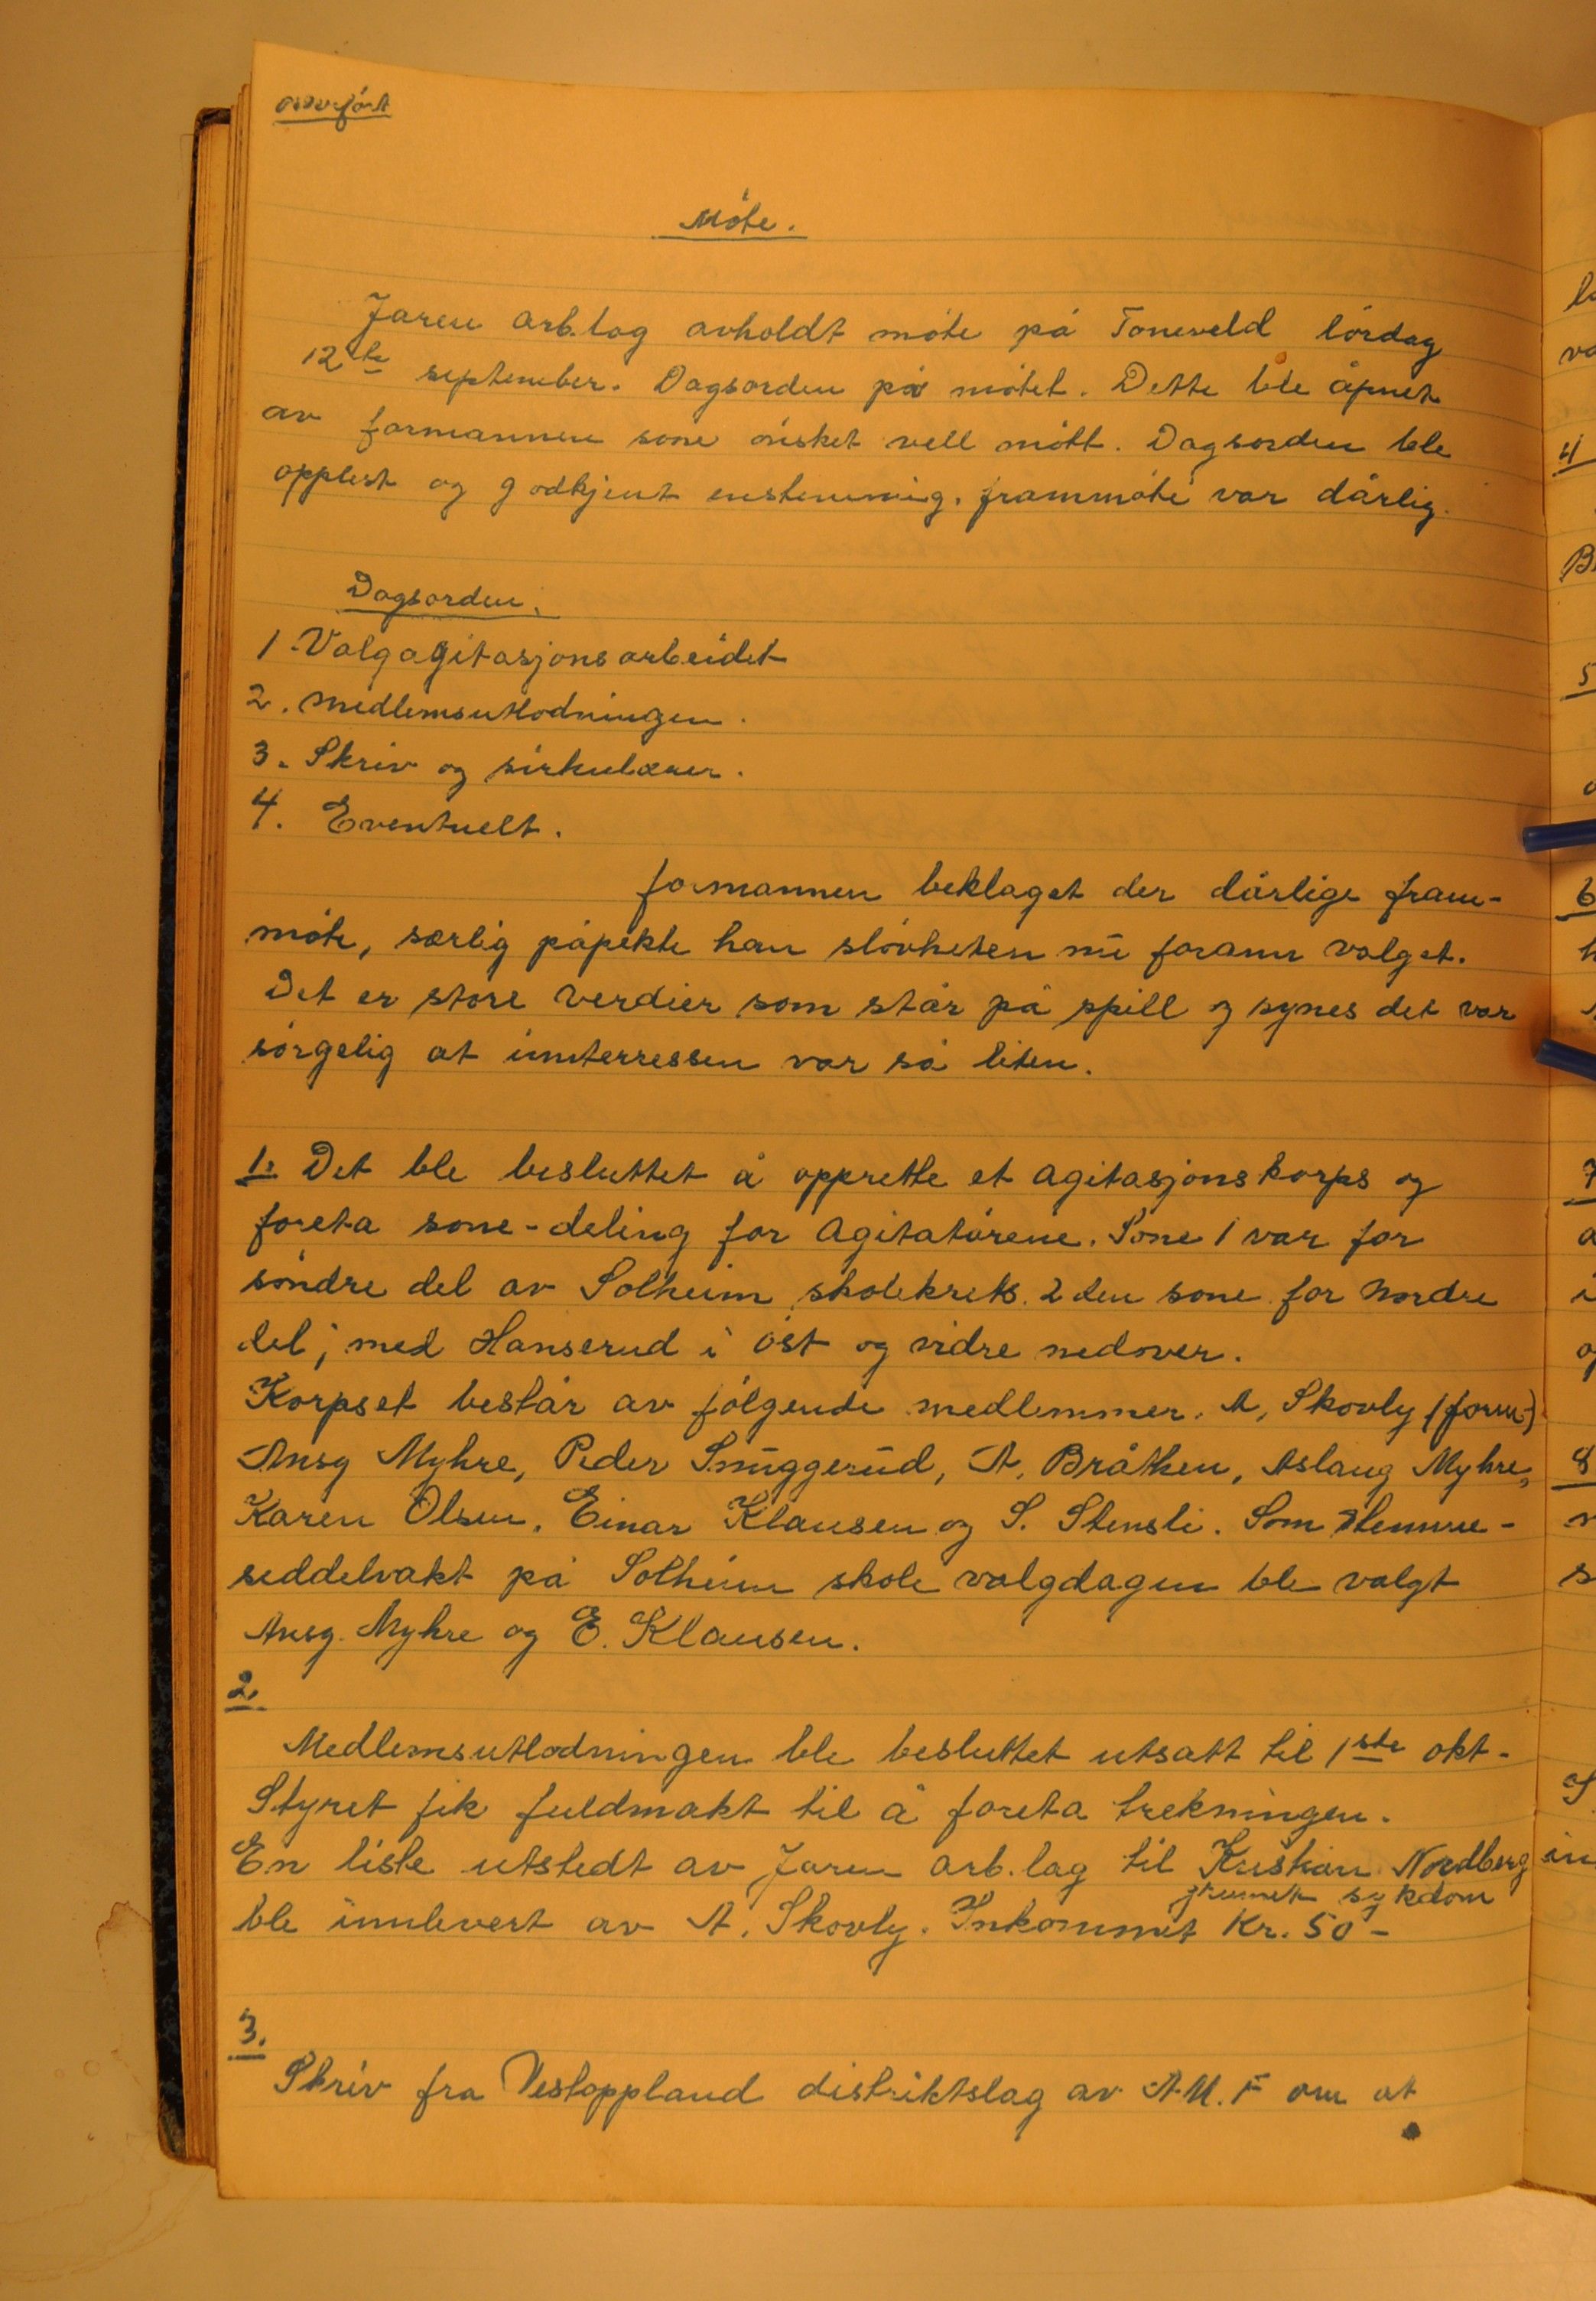 overført
Møte.
Jaren arb.lag avholdt møte på Toneveld lørdag
12te september. Dagsorden på møtet. Dette ble åpnet
av formannen som ønsket vell møtt. Dagsorden ble
opplest og godkjent enstemmig. frammøte var dårlig.
Dagsorden.
1. Valgagitasjonsarbeidet
2. Medlemsutlodningen.
3. Skriv og sirkulærer.
4. Eventuelt.
formannen beklaget der dårlige fram-
møte, særlig påpekte han sløvheten nu forann valget.
Det er store verdier som står på spill og synes det var
sørgelig at innterressen var så liten.
1. Det ble besluttet å opprette et agitasjonskorps og
foreta sone-deling for agitatørene. Sone 1 var for
søndre del av Solheim skolekrets. 2den sone for Nordre
del; med Hanserud i øst og vidre nedover.
Korpset består av følgende medlemmer. A, Skovly (form.)
Ansg Myhre, Peder Smuggerud, A. Bråthen, Aslaug Myhre,
Karen Olsen, Einar Klausen og S. Stensli. Som stemme-
seddelvakt på Solheim skole valgdagen ble valgt
Ansg. Myhre og E. Klausen.
2.
Medlemsutlodningen ble besluttet utsatt til 1ste okt.
Styret fik fuldmakt til å foreta trekningen.
En liste utstedt av Jaren arb.lag til Kristian Nordberg
grunnet sykdom
ble innlevert av A. Skovly. Inkommet Kr. 50-
3.
Skriv fra Vestoppland distriktslag av A.U.F om at